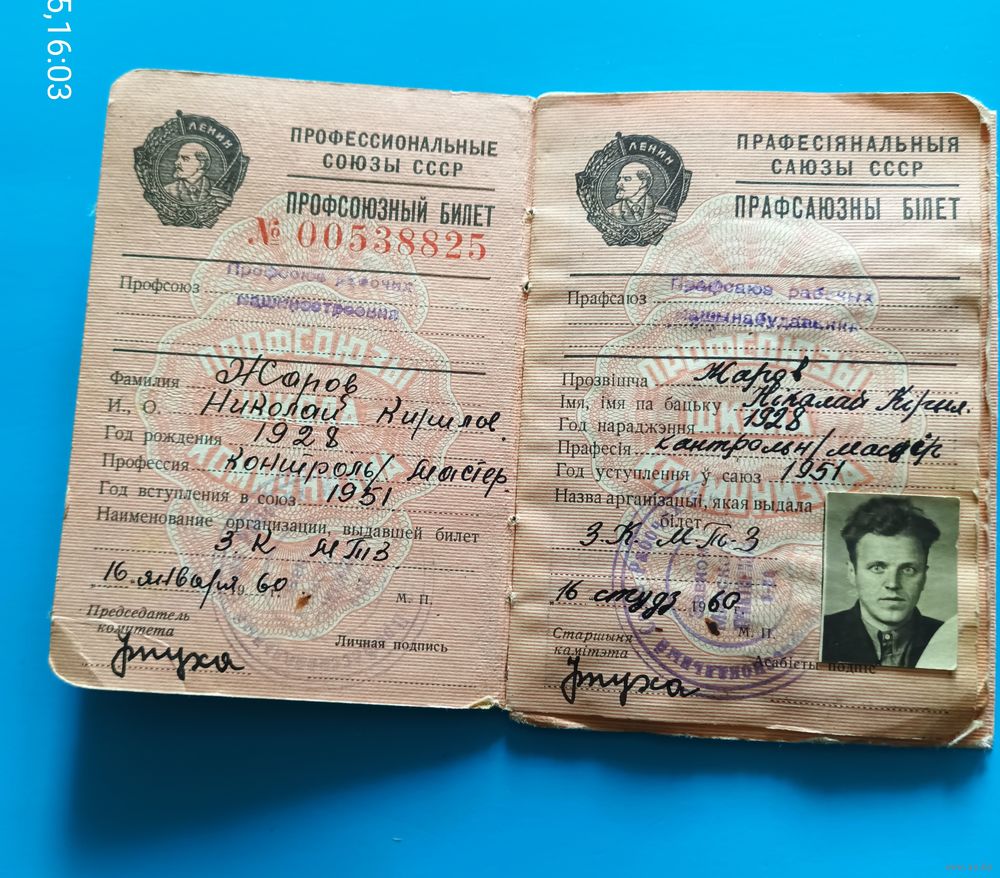 5,16:03
ЛЕНИН
ПРОФЕССИОНАЛЬНЫЕ
СОЮЗЫ СССР
ПРОФСОЮЗНЫЙ БИЛЕТ
№ 00538825
Профсоюз Профсоюз рабочих
машиностроения
ПРОФСОЮЗЫ
ШКОЛА
КОММУНИЗМА
Фамилия Жаров
И., О. Николай Кирилов.
Год рождения 1928
Профессия контроль/ мастер.
Год вступления в союз 1951
Наименование организации, выдавшей билет
З К МТЗ
"16 января 1960
М. П.
Председатель
комитета
Личная подпись
ЛЕНИН
ПРАФЕСІЯНАЛЬНЫЯ
САЮЗЫ СССР
ПРАФСАЮЗНЫ БІЛЕТ
Прафсаюз Прафсаюз рабочых
машынабудавання
ПРОФСОЮЗЫ
ШКОЛА
КОММУНИЗМА
Прозвішча Жараў
Імя, імя па бацьку Нікалай Кірил.
Год нараджэння 1928
Прафесія кантроль/ майстар
Год уступлення ў саюз 1951
Назва арганізацыі, якая выдала
білет
З.К. М-Т-З
"16 студз 1960
М. П.
Старшыня
камітэта
Асабісты подпіс